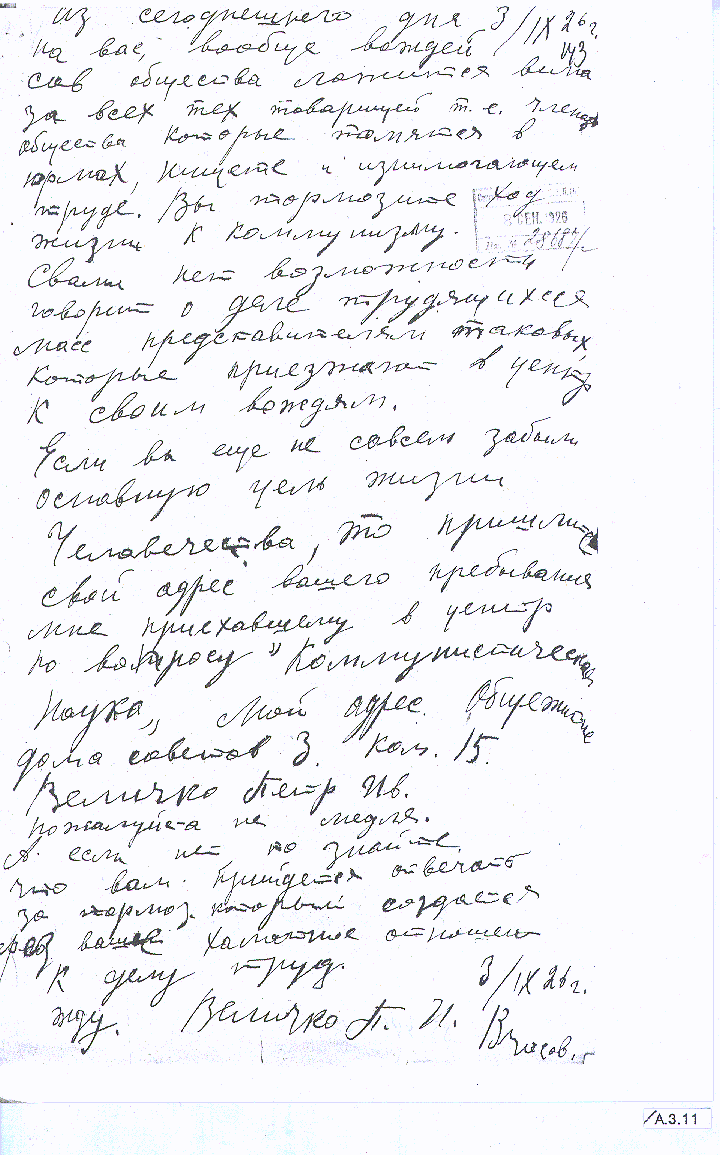 из сегоднешнего дня 3/IX 26 г.
на вас, вообще вождей из
сов общества ложится вина
за всех тех товарищей т.е. членов
общества которые томятся в
юрмах, нищете и изнимогающем
труде. Вы тормозите ход
8 СЕН. 1926
жизни к коммунизму.
Свами нет возможности
говорит о деле трудящихся
масс представителям таковых,
которые приезжают в центр
к своим вождям.
Если вы еще не совсем забыли
основную цель жизни
Человечества, то пришлите
свой адрес вашего пребывания
мне приехавшему в центр
по вопросу "Коммунистическая
Наука„ Мой адрес. Общежитие
дома советов 3. ком. 15.
Величко Петр Ив.
пожалуйста не медля.
А если нет то знайте
что вам прийдется отвечать
за тормоз. который создается
вашее халатное отношен
к делу труд.
3/IX 26 г.
жду. Величко П. И.
В часов.
/A.3.11